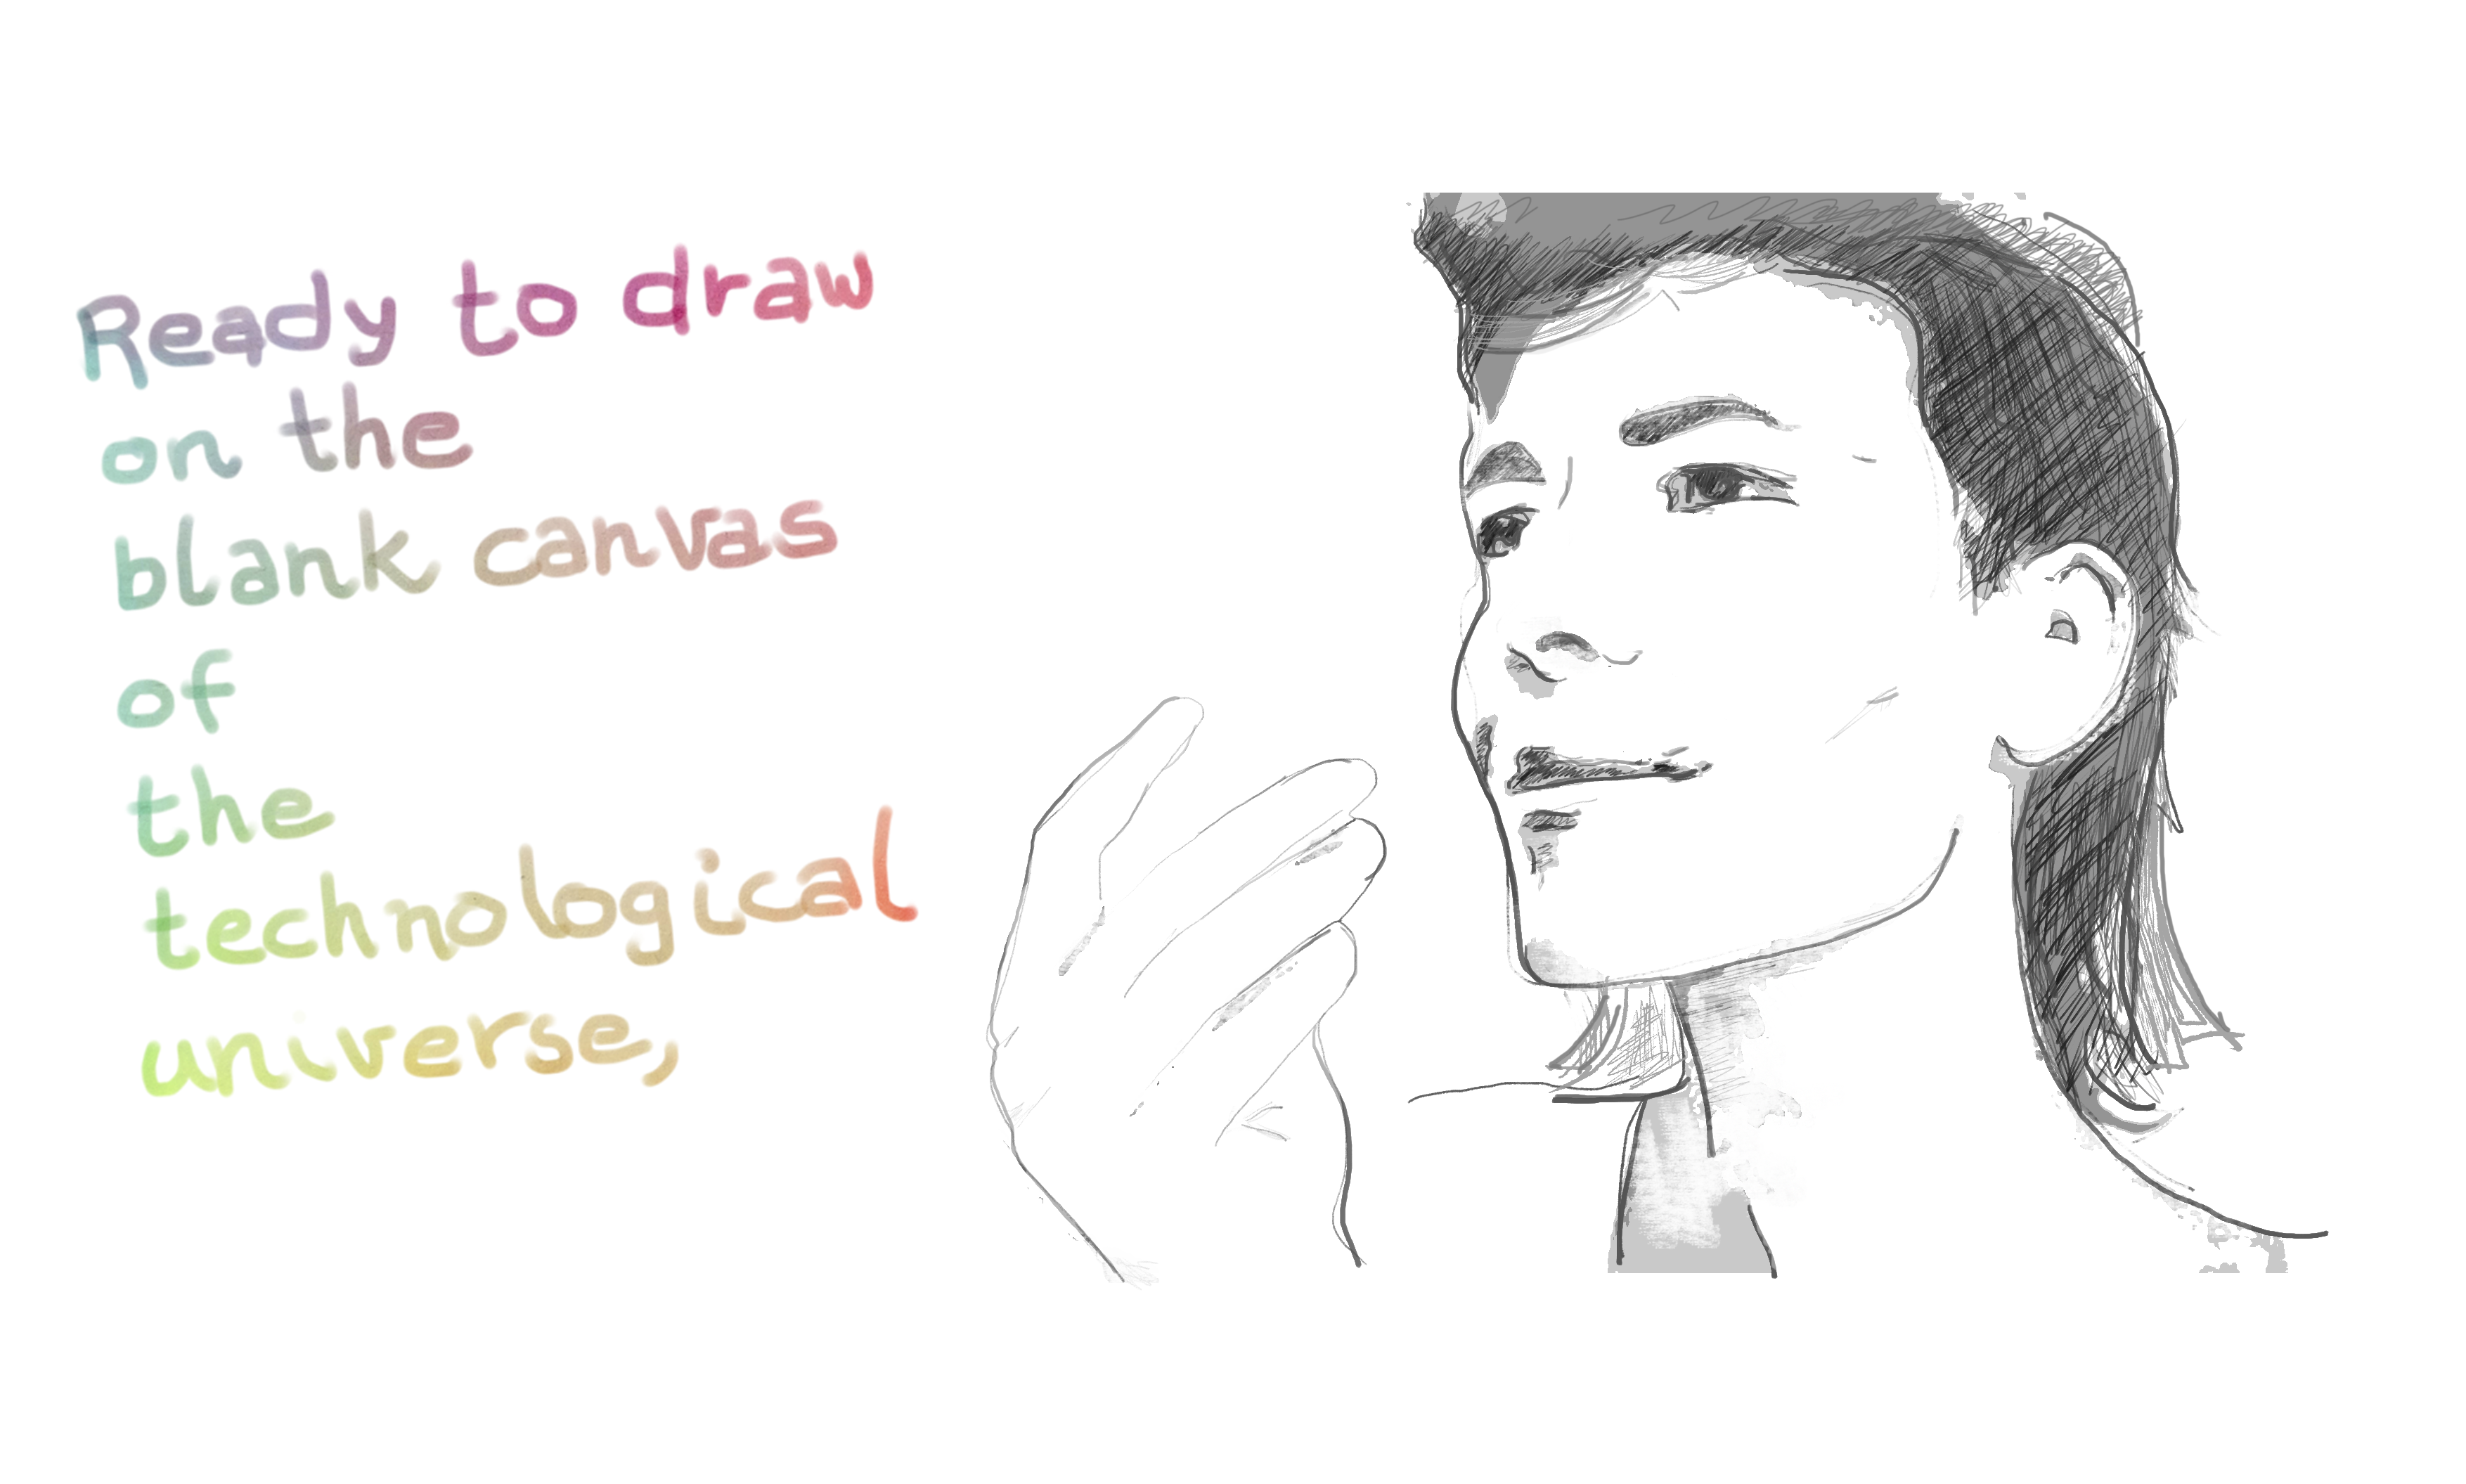 Ready to draw
on the
blank canvas
of
the
technological
universe,